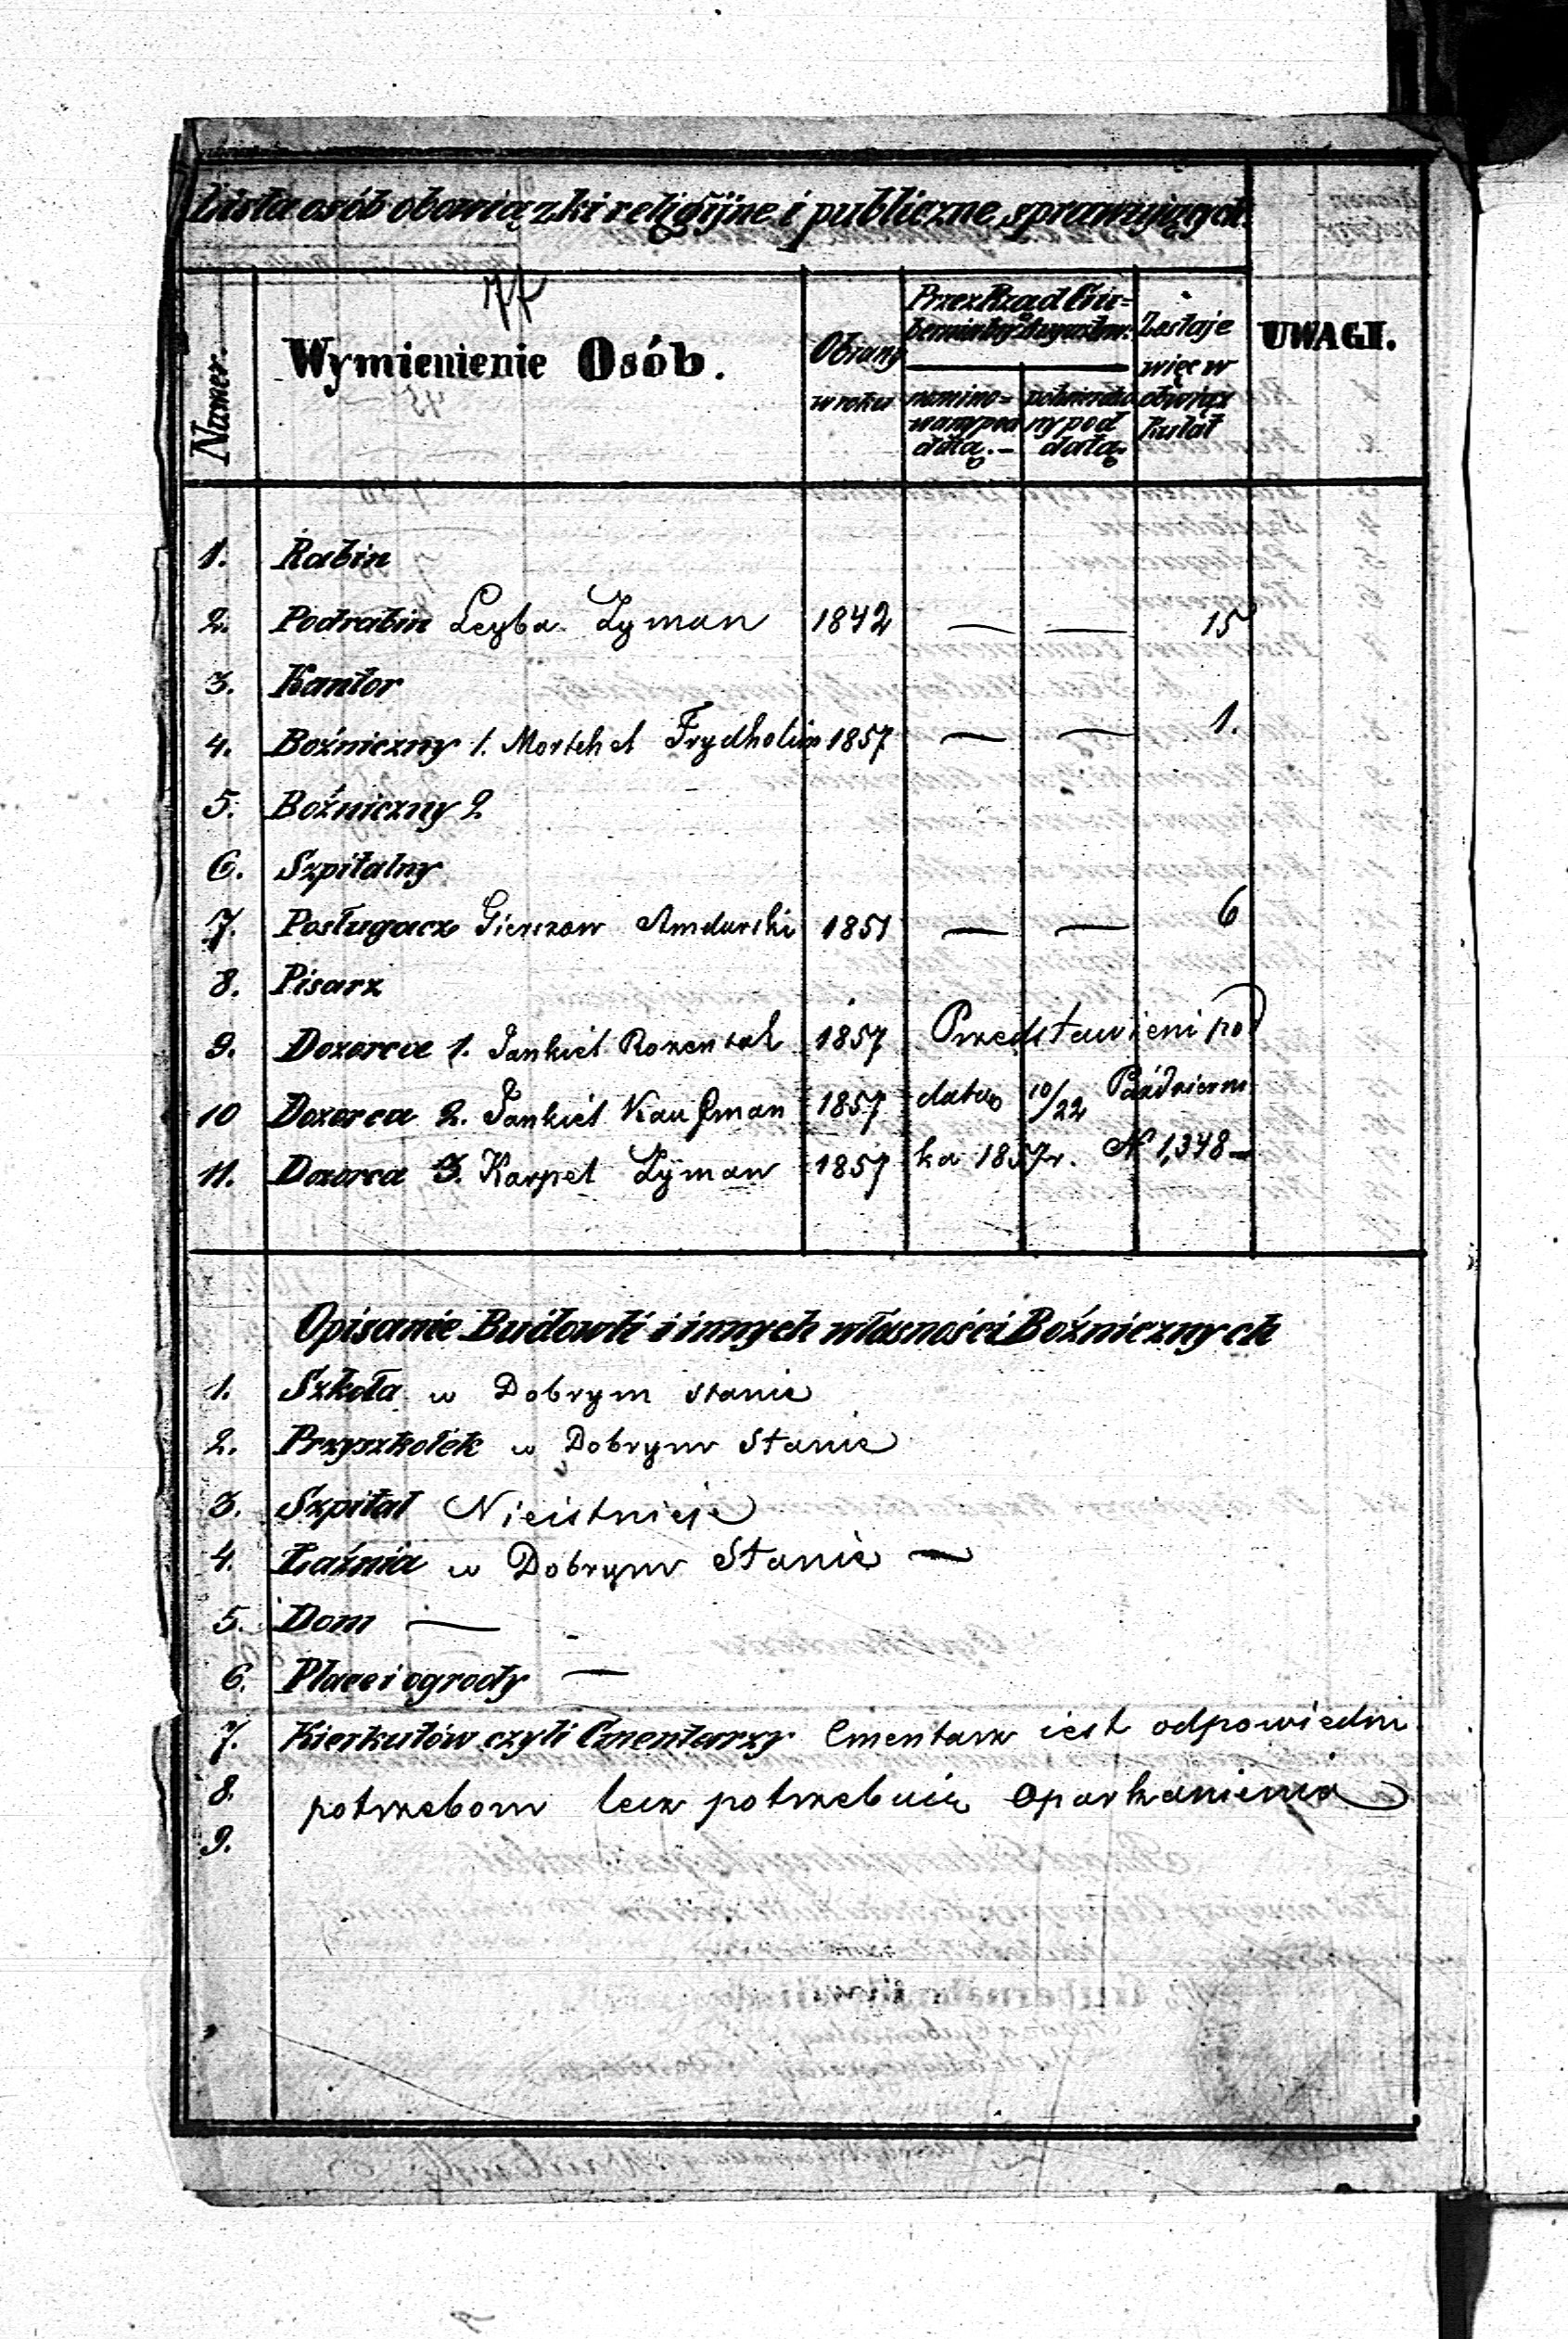 Lista osób obowiązki religijne i publiczne sprawujących
77
Numer.
Wymienienie Osób.
Obrany w roku
Przez Rząd Gubernialny
nominowany pod datą.-
potwierdzony pod datą.
Zostaje więc w obowiązku lat
UWAGI.
1. Rabin
2. Podrabin Leyba Zyman 1842 — — 15
3. Kantor
4. Bożniczny 1. Mortchel 1857 — — 1.
5. Bożniczny 2
6. Szpitalny
7. Posługacz Gierszon Amdurski 1851 — — 6
8. Pisarz
9. Dozorca 1. Jankiel Rozental 1857 Przedstawieni pod
10 Dozorca 2. Jankiel Kaufman 1857 datą 10/22 Październi
11. Dozorca 3. Karpel Zyman 1857 ka 1857 r. N 1,348 —
Opisanie Budowli i innych własności Bożnicznych
1. Szkoła w Dobrym stanie
2. Przyszkołek w Dobrym Stanie
3. Szpital Nieistnieje
4. Łaźnia w Dobrym Stanie —
5. Dom —
6. Place i ogrody —
7. Kierkutów czyli Cmentarzy Cmentarz iest odpowiedni
8. potrzebom lecz potrzebuie oparkanienia
9.